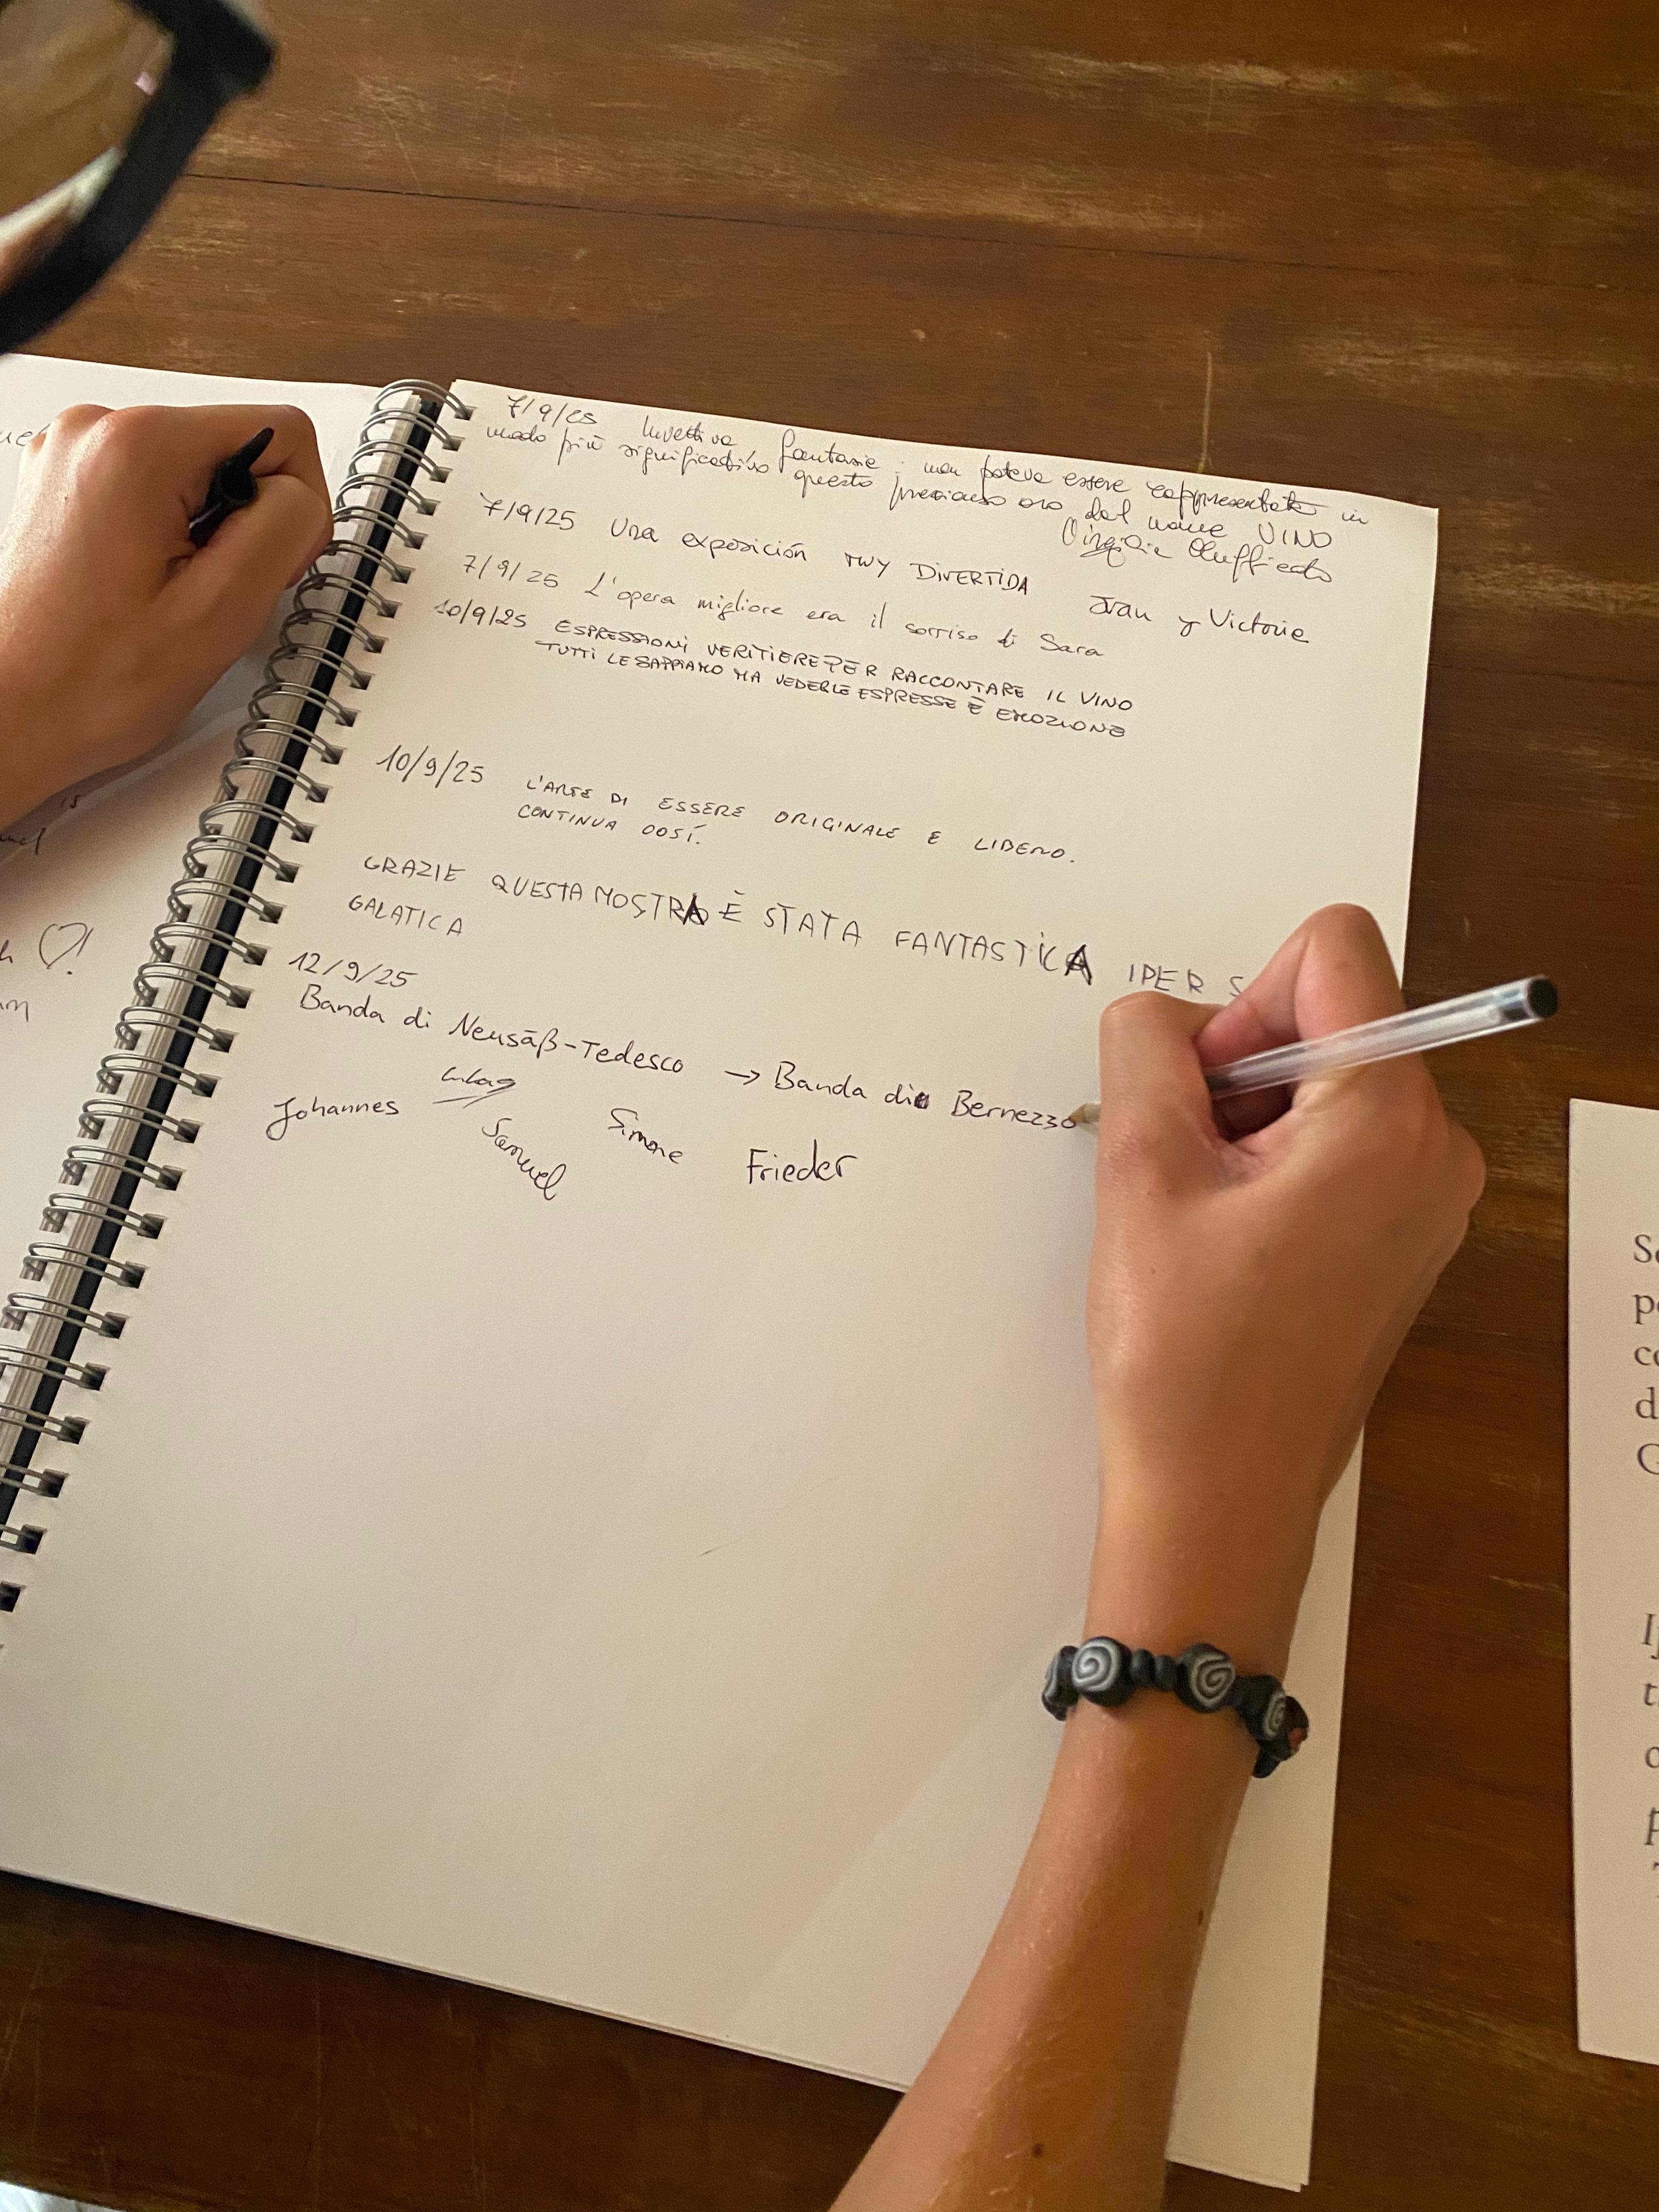 7/9/25 Invettiva, fantasie: non poteva essere rappresentato in
modo più significativo questo prezioso oro dal nome VINO
7/9/25 Una exposición MUY DIVERTIDA Joan y Victorie
7/9/25 L'opera migliore era il sorriso di Sara
10/9/25 ESPRESSIONI VERITIERE PER RACCONTARE IL VINO
TUTTI LE SAPPIAMO MA VEDERLE ESPRESSE È EMOZIONE
10/9/25 L'ARTE DI ESSERE ORIGINALE E LIBERO.
CONTINUA COSÍ.
GRAZIE QUESTA MOSTRA È STATA FANTASTICA IPER S
GALATICA
12/9/25
Banda di Neusäß-Tedesco → Banda di Bernezzo
Johannes Samuel Simone Frieder